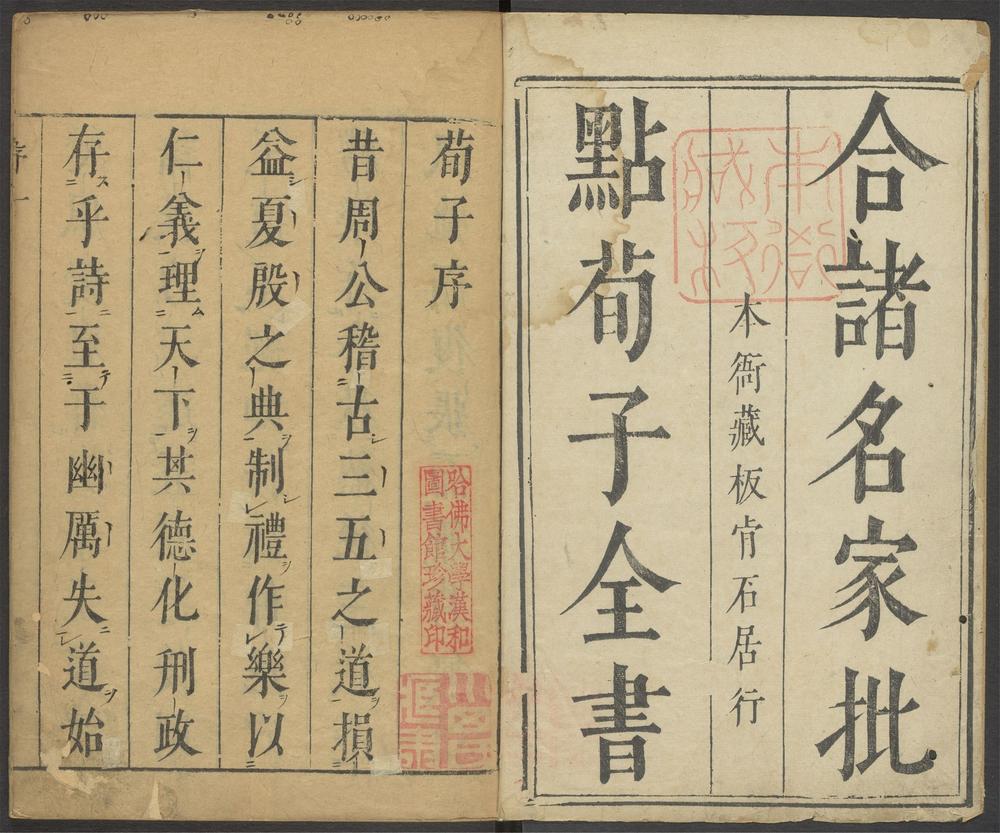 合諸名家批
本衙藏板肯石居行
點荀子全書
荀子序
哈佛大學漢和
圖書館珍藏印
昔周公稽古三五之道損
益夏殷之典制禮作樂以
仁義理天下其德化刑政
存乎詩至于幽厲失道始